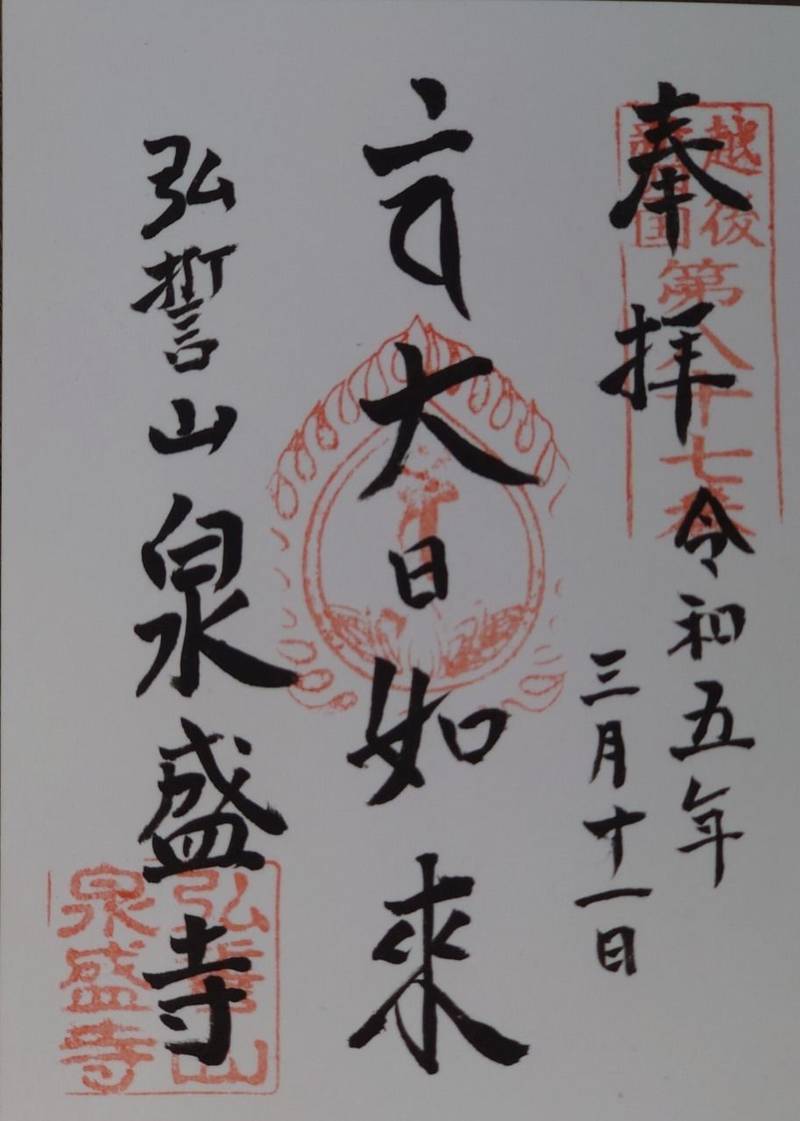 奉拝
令和五年
三月十一日
大日如来
弘誓山 泉盛寺
越後
四国
第八十七番
弘誓山
泉盛寺